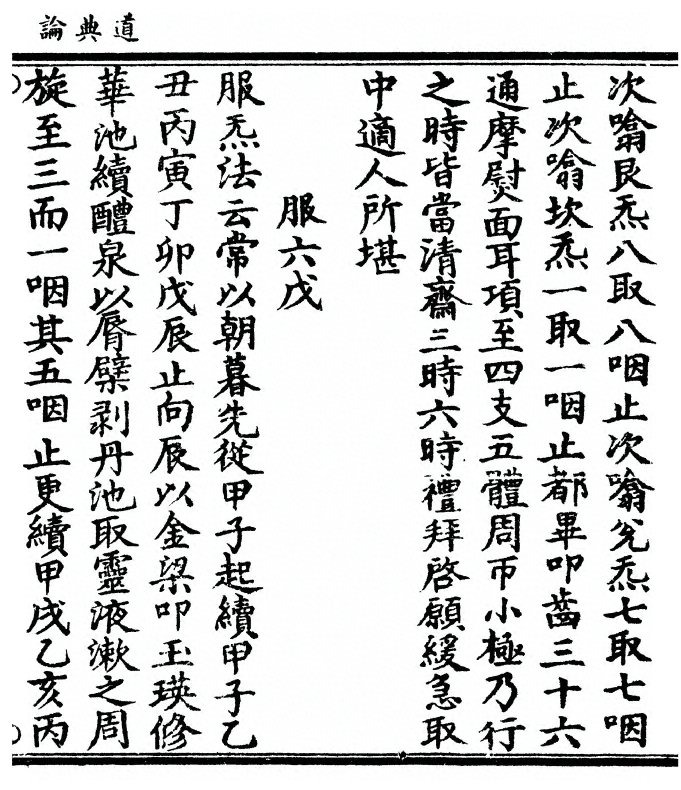 道典論
次噏艮炁八取八咽止次噏兊炁七取七咽
止次噏坎炁一取一咽止都畢叩齒三十六
通摩熨面耳項至四支五體周帀小極乃行
之時皆當清齋三時六時禮拜啓願緩急取
中適人所堪
服六戊
服炁法云常以朝暮先從甲子起續甲子乙
丑丙寅丁卯戊辰止向辰以金梁叩玉瑛修
華池續醴泉以脣檗剥丹池取靈液漱之周
旋至三而一咽其五咽止更續甲戌乙亥丙